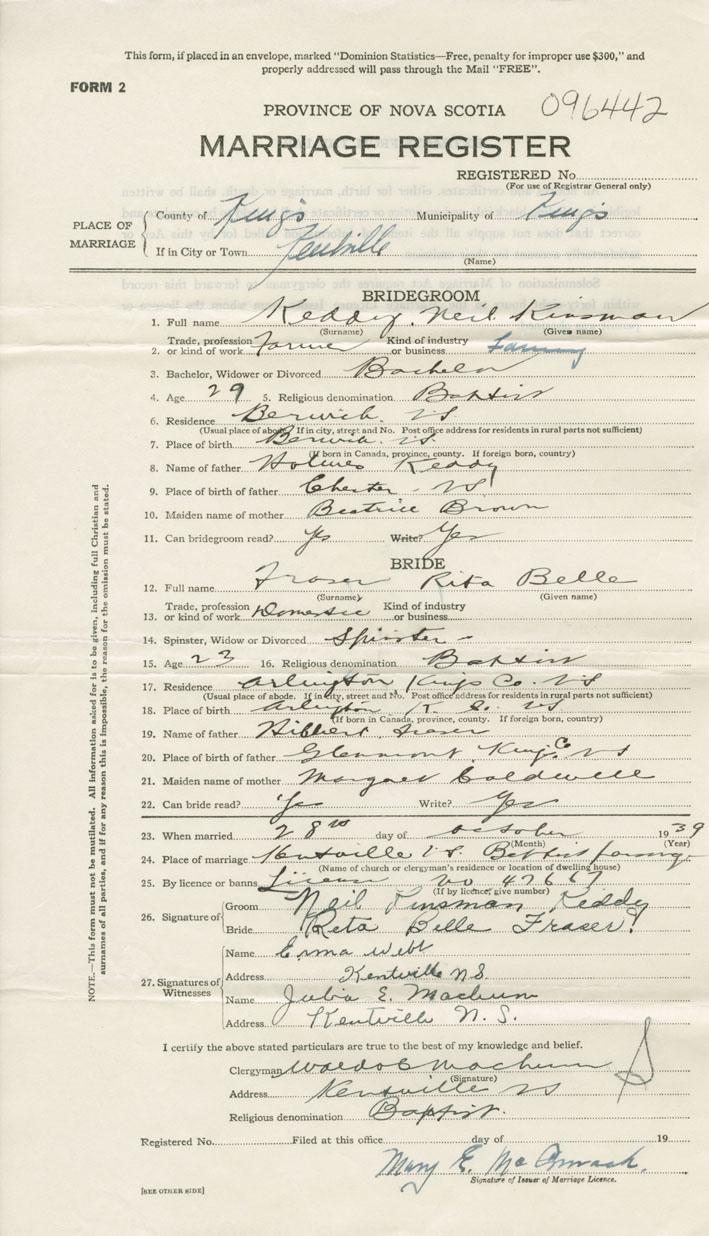 This form, if placed in an envelope, marked "Dominion Statistics—Free, penalty for improper use $300," and
properly addressed will pass through the Mail "FREE".
FORM 2
PROVINCE OF NOVA SCOTIA 096442
MARRIAGE REGISTER
REGISTERED No.
(For use of Registrar General only)
PLACE OF MARRIAGE
County of Kings Municipality of Kings
If in City or Town Kentville
(Name)
BRIDEGROOM
1. Full name Keddy, Neil Kinsman
(Surname) (Given name)
2. Trade, profession or kind of work Farmer Kind of industry or business Farming
3. Bachelor, Widower or Divorced Bachelor
4. Age 29 5. Religious denomination Baptist
6. Residence Berwick. NS
(Usual place of abode. If in city, street and No. Post office address for residents in rural parts not sufficient)
7. Place of birth Berwick. NS.
(If born in Canada, province, county. If foreign born, country)
8. Name of father Holmes Keddy
9. Place of birth of father Chester. NS
10. Maiden name of mother Beatrice Brown
11. Can bridegroom read? Yes Write? Yes
BRIDE
12. Full name Fraser Rita Belle
(Surname) (Given name)
13. Trade, profession or kind of work Domestic Kind of industry or business
14. Spinster, Widow or Divorced Spinster
15. Age 23 16. Religious denomination Baptist
17. Residence Arlington Kings Co. NS
(Usual place of abode. If in city, street and No. Post office address for residents in rural parts not sufficient)
18. Place of birth Arlington K. Co. NS
(If born in Canada, province, county. If foreign born, country)
19. Name of father Hibbert Fraser
20. Place of birth of father Glenmont Kings Co NS
21. Maiden name of mother Margaret Caldwell
22. Can bride read? Yes Write? Yes
23. When married 28th day of October 1939
(Month) (Year)
24. Place of marriage Kentville NS. Baptist
(Name of church or clergyman's residence or location of dwelling house)
25. By licence or banns License No
(If by licence, give number)
26. Signature of
Groom Neil Kinsman Keddy
Bride Reta Belle Fraser
27. Signatures of Witnesses
Name Erma Webb
Address Kentville N.S.
Name Julia E. Machum
Address Kentville N. S.
I certify the above stated particulars are true to the best of my knowledge and belief.
Clergyman Waldo C Machum
(Signature)
Address Kentville NS
Religious denomination Baptist.
Registered No. Filed at this office day of 19
Mary E.
Signature of Issuer of Marriage Licence.
[SEE OTHER SIDE]
NOTE.—This form must not be mutilated. All information asked for is to be given, including full Christian and
surnames of all parties, and if for any reason this is impossible, the reason for the omission must be stated.